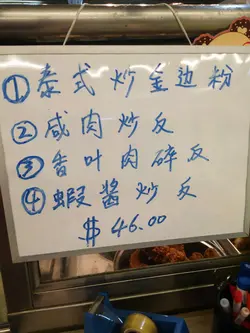 ① 泰式炒金边粉
② 咸肉炒反
③ 香叶肉碎反
④ 蝦醬炒反
$46.00